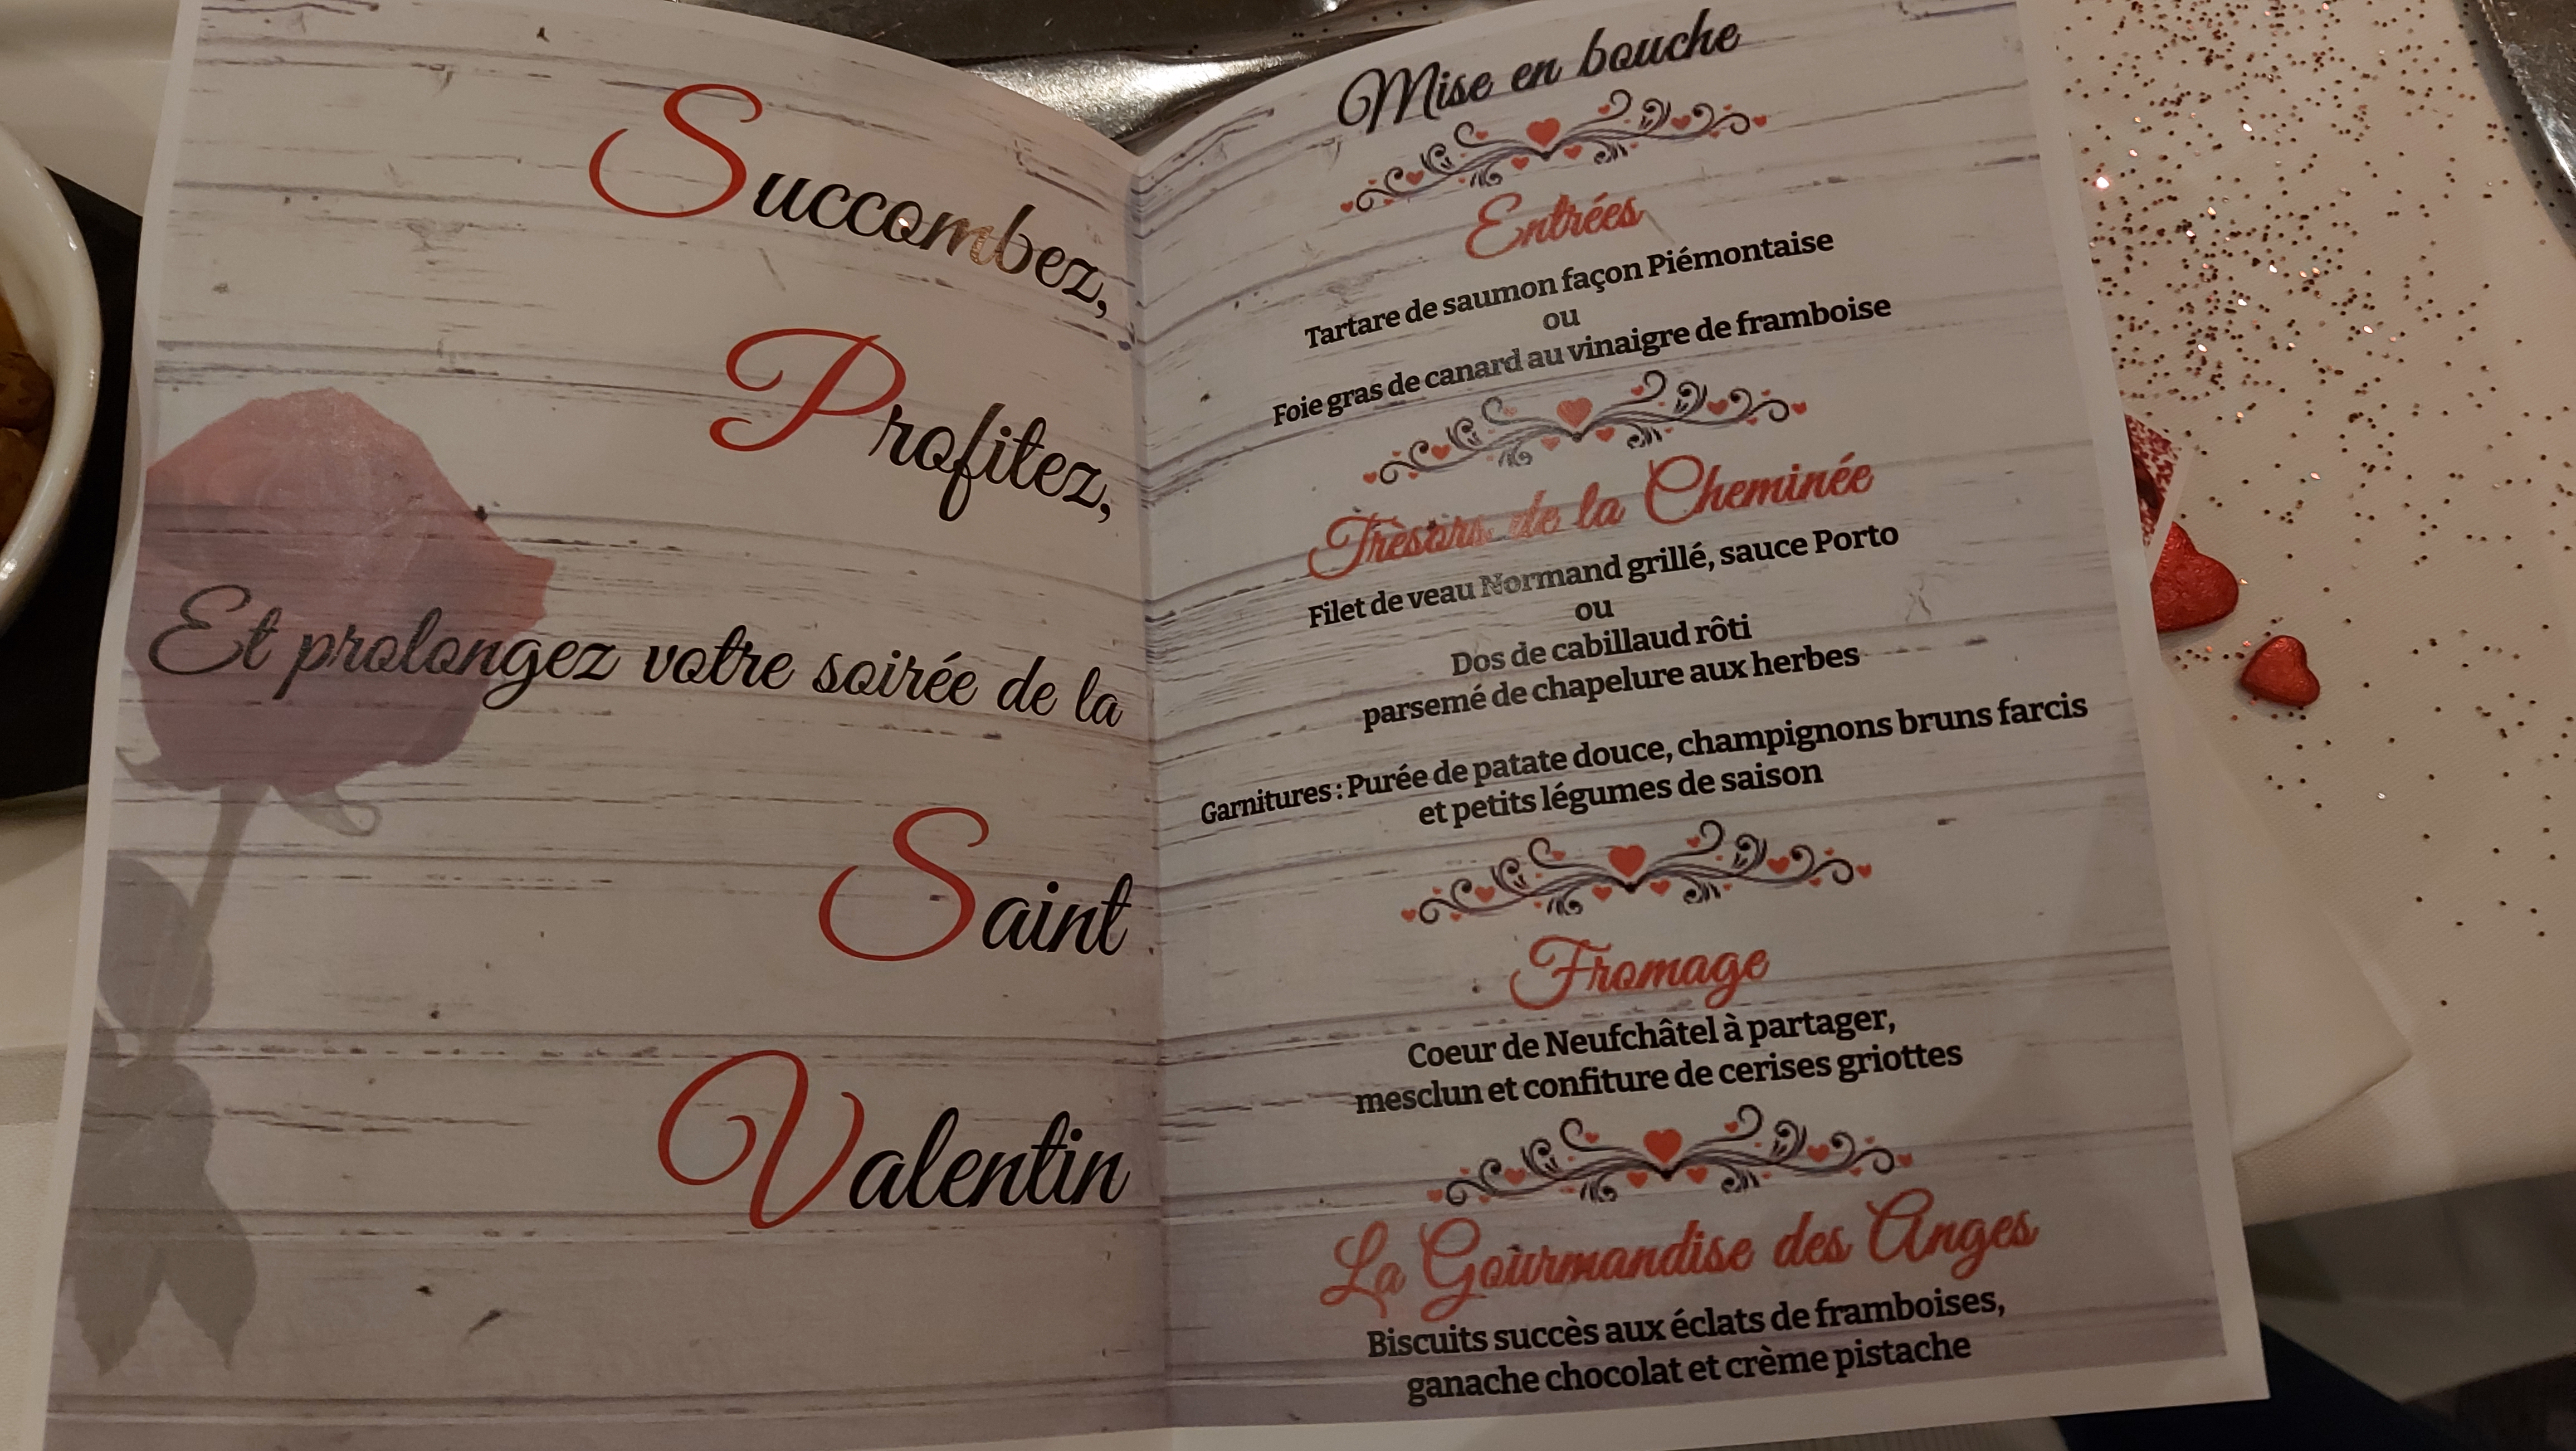 Succombez,
Profitez,
Et prolongez votre soirée de la
Saint
Valentin
Mise en bouche
Entrées
Tartare de saumon façon Piémontaise
ou
Foie gras de canard au vinaigre de framboise
Trèsors de la Cheminée
Filet de veau Normand grillé, sauce Porto
ou
Dos de cabillaud rôti
parsemé de chapelure aux herbes
Garnitures : Purée de patate douce, champignons bruns farcis
et petits légumes de saison
Fromage
Coeur de Neufchâtel à partager,
mesclun et confiture de cerises griottes
La Gourmandise des Anges
Biscuits succès aux éclats de framboises,
ganache chocolat et crème pistache